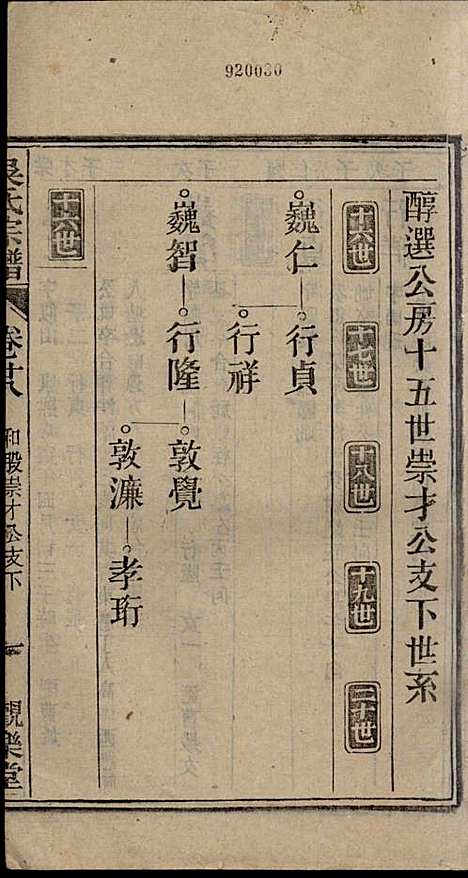 920030
醇選公房十五世崇才公支下世系
十六世 十七世 十八世 十九世 二十世
巍仁 行貞
行祥
巍智 行隆 敦覺
敦濂 孝珩
十六世
吳氏宗譜 卷廿八 和段崇才公支下 一 觀樂堂